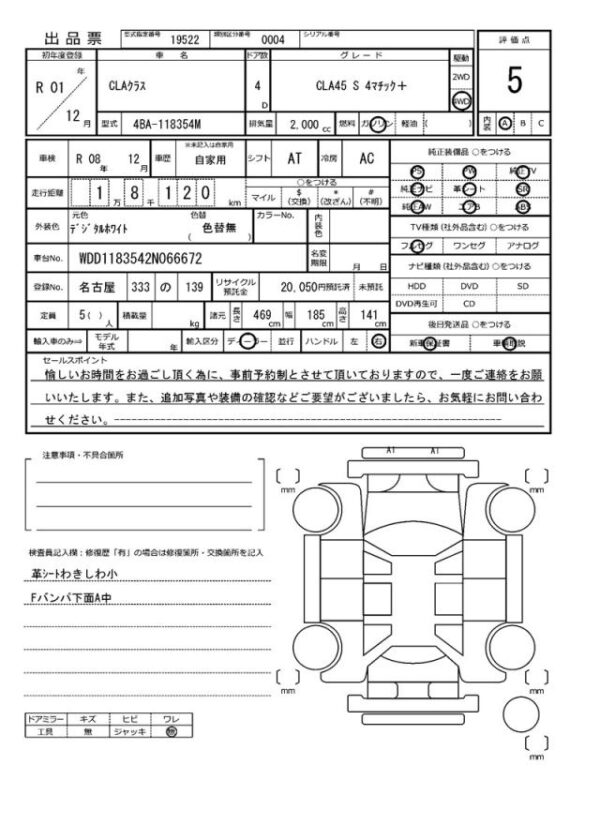 出品票 型式指定番号 19522 類別区分番号 0004 シリアル番号
評価点
初年度登録 車名 ドア数 グレード 駆動
R 01 年 CLAクラス 4 D CLA45 S 4マチック+ 2WD
5
12 月 4WD
型式 4BA-118354M 排気量 2,000 cc 燃料 ガソリン 軽油 ( ) 内装 A B C
車検 R 08 年 12 月 車歴 ※未記入は自家用 自家用 シフト AT 冷房 AC
純正装備品 ○をつける
PS PW 純正TV
純正ナビ 革シート SR
純正AW エアB ABS
走行距離 1 万 8 千 1 2 0 km ○をつける
マイル $ (交換) * (改ざん) # (不明)
外装色 元色 デジタルホワイト 色替 ( 色替無 ) カラーNo. 内装色
TV種類(社外品含む) ○をつける
フルセグ ワンセグ アナログ
車台No. WDD1183542N066672 名変期限 月 日
ナビ種類(社外品含む) ○をつける
HDD DVD SD
登録No. 名古屋 333 の 139 リサイクル預託金 20,050円預託済 未預託
DVD再生可 CD
定員 5( )人 積載量 kg 諸元 長さ 469 cm 幅 185 cm 高さ 141 cm
後日発送品 ○をつける
輸入車のみ⇒ モデル年式 年 輸入区分 ディーラー 並行 ハンドル 左 右 新車保証書 車輌取説
セールスポイント
愉しいお時間をお過ごし頂く為に、事前予約制とさせて頂いておりますので、一度ご連絡をお願
いいたします。また、追加写真や装備の確認などご要望がございましたら、お気軽にお問い合わ
せください。------------------------------------------------------------
注意事項・不具合箇所
A1 A1
mm mm
検査員記入欄:修復歴「有」の場合は修復箇所・交換箇所を記入
革シートわきしわ小
Fバンパ下面A中
mm mm
ドアミラー キズ ヒビ ワレ
工具 無 ジャッキ 無
mm